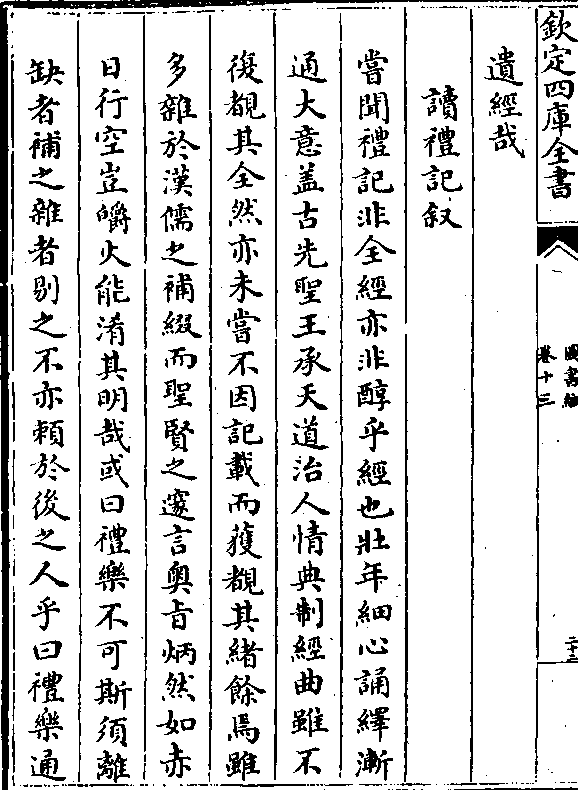 欽定四庫全書
圖書編
卷十三
二十三
遺經哉
讀禮記叙
嘗聞禮記非全經亦非醇乎經也壯年細心誦繹漸
通大意盖古先聖王承天道治人情典制經曲雖不
復覩其全然亦未嘗不因記載而獲覩其緒餘焉雖
多雜於漢儒之補綴而聖賢之邃言奥旨炳然如赤
日行空豈爝火能淆其明哉或曰禮樂不可斯須離
缺者補之雜者剔之不亦頼於後之人乎曰禮樂通